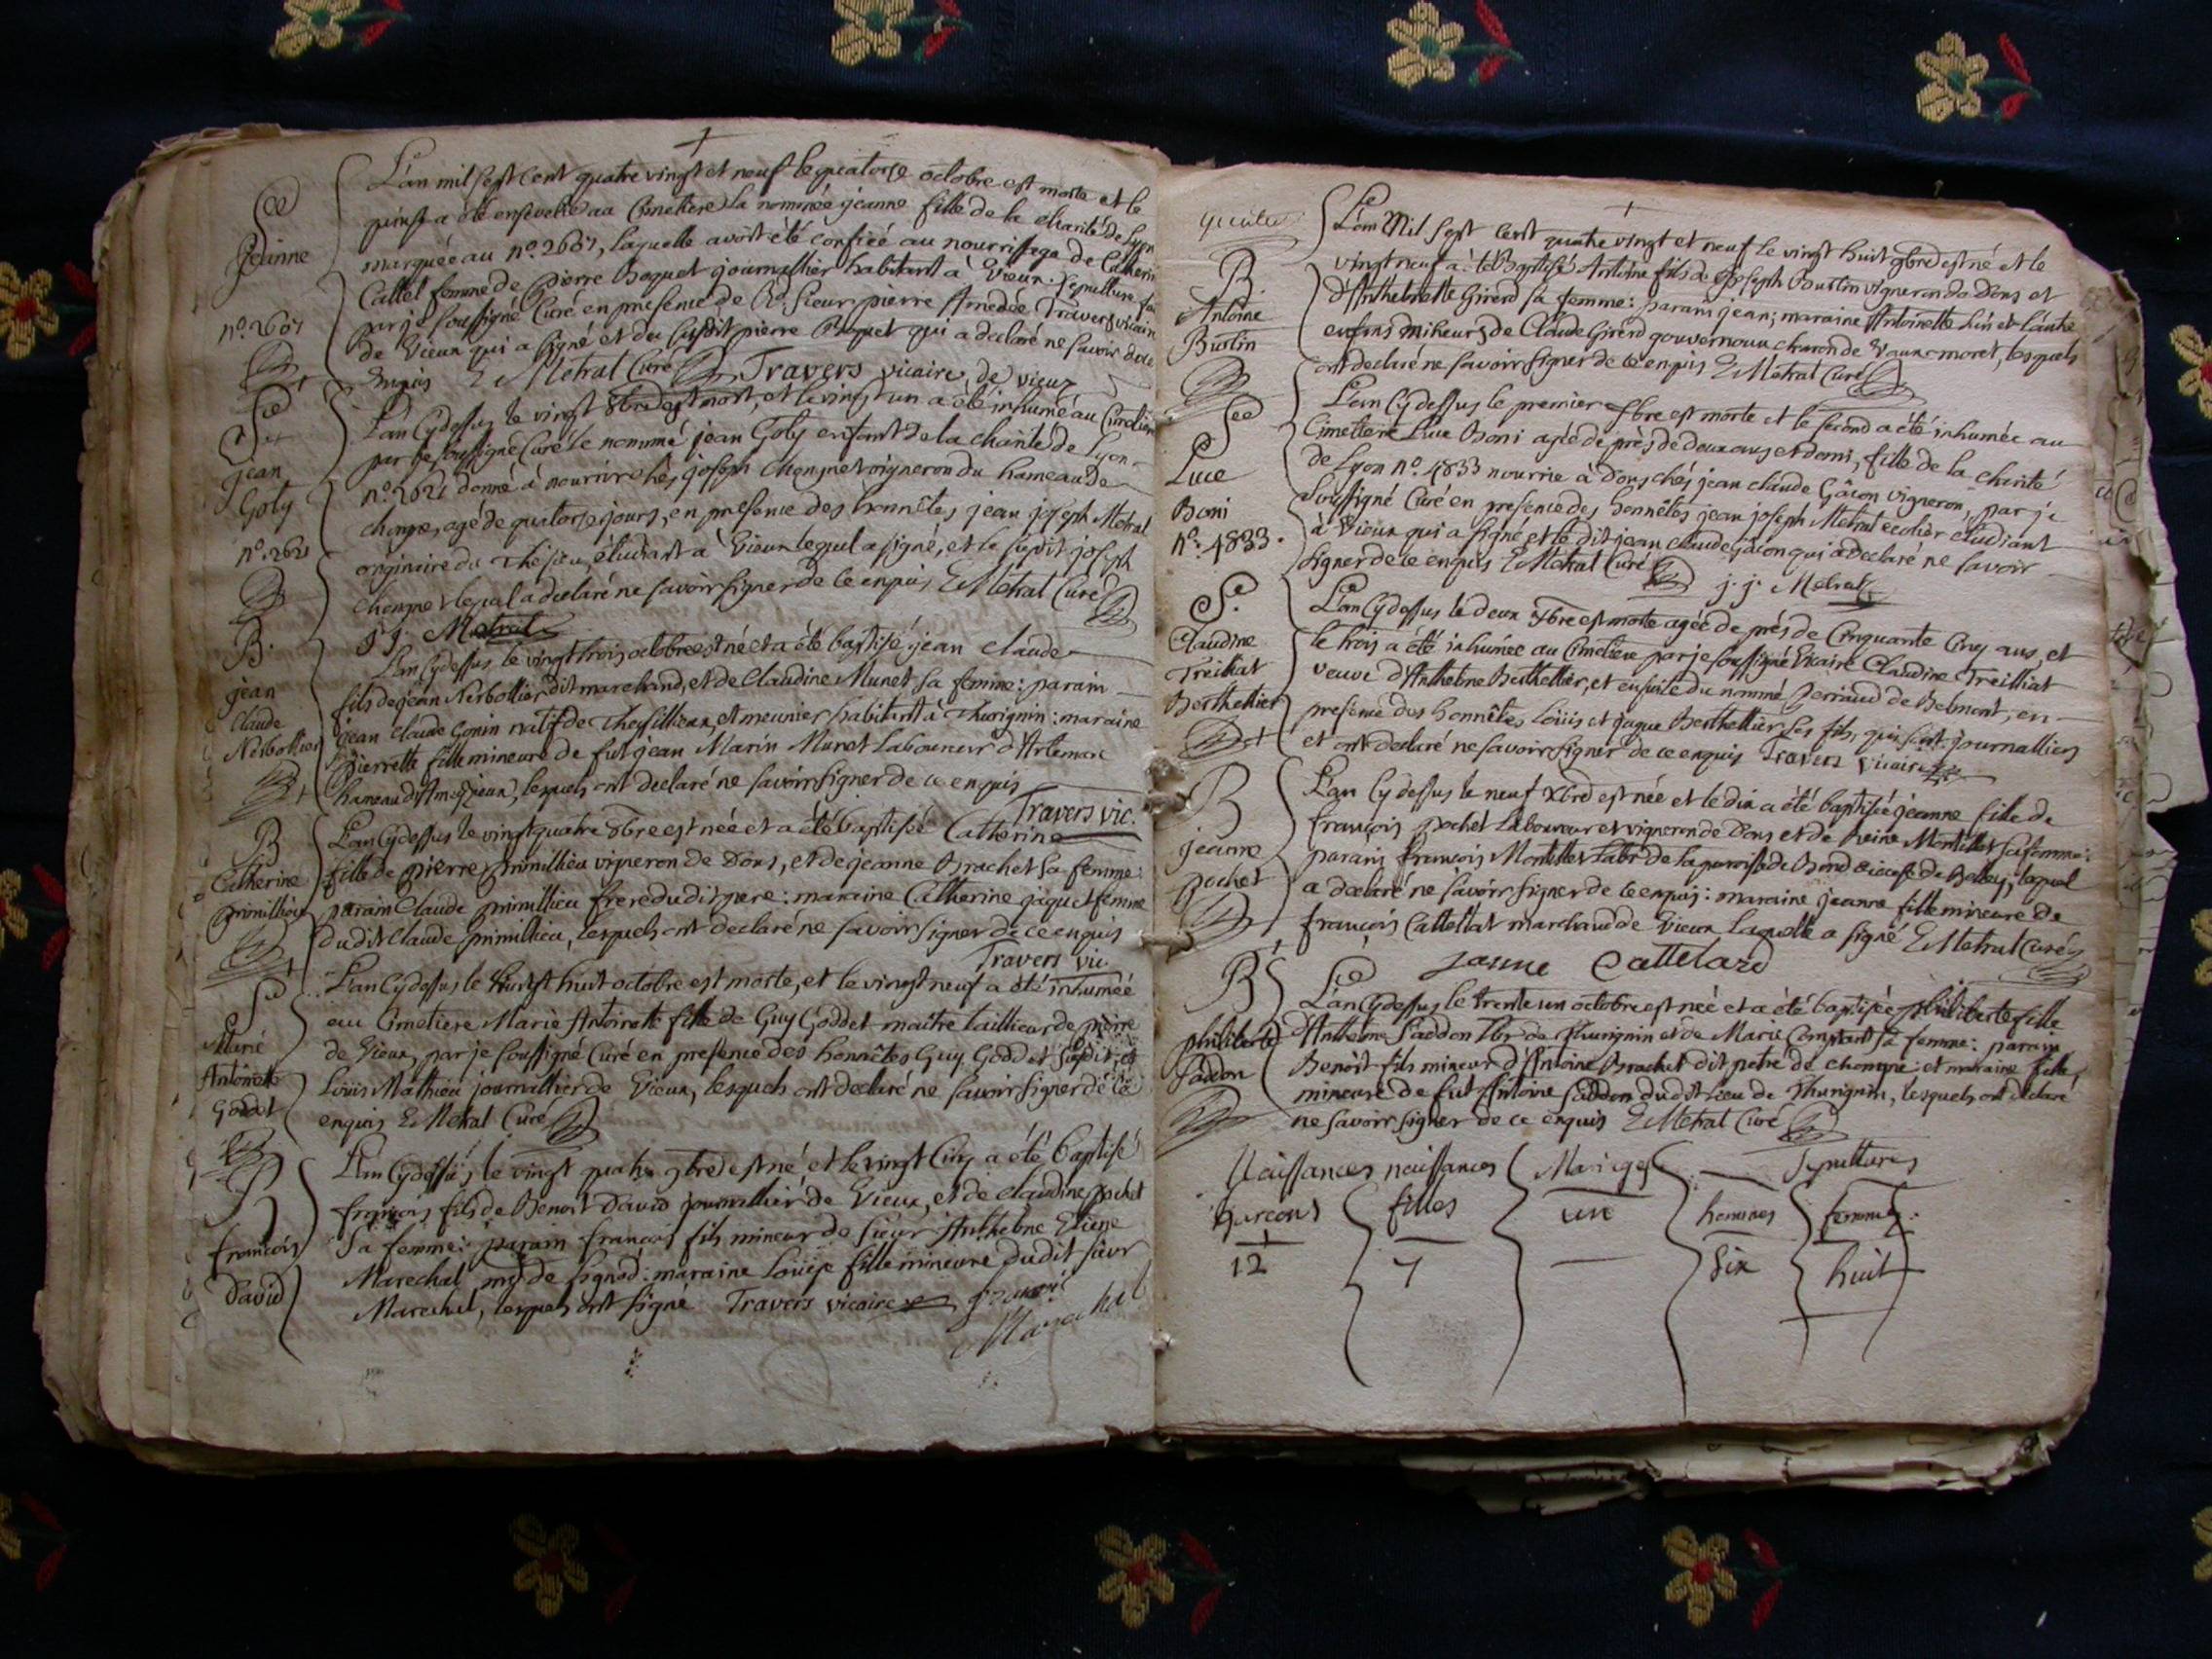 L'an mil sept cent quatre vingt et neuf le quatorze octobre est morte et le
quinze a été ensevelie au Cimetiere la nommée jeanne fille de la charité de Lyon
marquée au nº. laquelle avoit été confiée au nourrissage de Catherine
femme de pierre Boquet journallier habitant à Vieux. Sepulture
par je soussigné Curé en presence de Rd. Sieur pierre Amedée Travers vicaire
de Vieux qui a signé et du susdit pierre Boquet qui a declaré ne savoir de ce
enquis E Metral Curé Travers vicaire de vieux
Jeanne
L'an Cydessus le vingt 8bre est mort, et le vingt un a été inhumé au Cimetiere
par je soussigné Curé le nommé jean Goly enfant de la charité de Lyon
nº. 2621 donné à nourrir chés joseph vigneron du hameau de
agé de quatorze jours, en presence des honnêtes jean joseph Metral
originaire de étudiant à Vieux lequel a signé, et le susdit joseph
lequel a declaré ne savoir signer de ce enquis E Metral Curé
j. j. Metral
jean
Goly
nº. 2621
L'an Cydessus le vingt trois octobre est né et a été baptisé jean claude
fils de jean Nerbollier dit marchand, et de Claudine Munet sa femme: parain
jean claude Gonin natif de et meunier habitant à Thurignin: maraine
Pierrette fille mineure de fut jean Marin Munet Laboureur d'Artemare
hameau lesquels ont declaré ne savoir signer de ce enquis
Travers vic.
B.
jean
Claude
Nerbollier
L'an Cydessus le vingt quatre 8bre est née et a été baptisé Catherine
fille de pierre primillieu vigneron de Dons, et de jeanne Brachet sa femme:
parain Claude primillieu frere dudit pere: maraine Catherine jaquet femme
dudit Claude primillieu, lesquels ont declaré ne savoir signer de ce enquis
Travers vic.
B
Catherine
primillieu
L'an Cydessus le vingt huit octobre est morte, et le vingt neuf a été inhumée
au Cimetiere Marie Antoinette fille de Guy Goddet maitre tailleur de pierre
de Vieux, par je soussigné Curé en presence des honnêtes Guy Goddet susdit, et
Loüis Mathieu journallier de Vieux, lesquels ont declaré ne savoir signer de ce
enquis E Metral Curé
Marie
Antoinette
Goddet
L'an Cydessus le vingt quatre 9bre est né et le vingt Cinq a été baptisé
françois fils de Benoit David journallier de Vieux, et de claudine pochet
sa femme: parain françois fils mineur de sieur Anthelme Etiene
Marechal md de Lignod: maraine Loüise fille mineure dudit sieur
Marechal, lesquels ont signé Travers vicaire
Marechal
B
françois
David
L'an Mil sept cent quatre vingt et neuf le vingt huit 9bre est né et le
vingt neuf a été Baptisé Antoine fils de joseph Burlin vigneron de Dons et
d'Anthelmette Girerd sa femme: parain jean; maraine Antoinette l'un et l'autre
enfans mineurs de Claude Girerd gouvernoux charon de lesquels
ont declaré ne savoir signer de ce enquis E Metral Curé
B.
Antoine
Burlin
L'an Cydessus le premier Xbre est morte et le second a été inhumée au
Cimetiere Luce Boni agée de près de deux ans et demi, fille de la charité
de Lyon nº. 4833 nourrie à Dons chés jean claude Gâcon vigneron, par je
soussigné Curé en presence des honnêtes jean joseph Metral ecolier etudiant
à Vieux qui a signé et le dit jean claude gâcon qui a declaré ne savoir
signer de ce enquis E Metral Curé j. j. Metral
Luce
Boni
nº. 4833.
L'an Cydessus le deux Xbre est morte agée de près de Cinquante Cinq ans, et
le trois a été inhumée au Cimetiere par je soussigné Vicaire Claudine Treilliat
veuve d'Anthelme Berthellier, et ensuite du nommé perriaud de Belmont, en
presence des honnêtes Loüis et jaque Berthellier ses fils, qui sont journalliers
et ont declaré ne savoir signer de ce enquis Travers vicaire
Claudine
Treilliat
Berthellier
L'an Cydessus le neuf Xbre est née et le dix a été baptisée jeanne fille de
françois pochet Laboureur et vigneron de Dons et de Reine Montillet sa femme:
parain françois Montillet Labr de la paroisse de diocese de Belley; lequel
a declaré ne savoir signer de ce enquis: maraine jeanne fille mineure de
françois Cattellat marchand de Vieux laquelle a signé E Metral Curé
janne Cattelard
B
jeanne
pochet
L'an Cydessus le trente un octobre est née et a été baptisée philiberte fille
d'Anthelme Paddon Lbr de Thurignin et de Marie Comptant sa femme: parain
Benoit fils mineur d'Antoine Brachet dit et maraine fille
mineure de fut Antoine Paddon dudit lieu de Thurignin, lesquels ont declaré
ne savoir signer de ce enquis E Metral Curé
B
philiberte
Paddon
Naissances naissances Mariages Sepultures
garcons filles un hommes femmes.
12 7 six huit